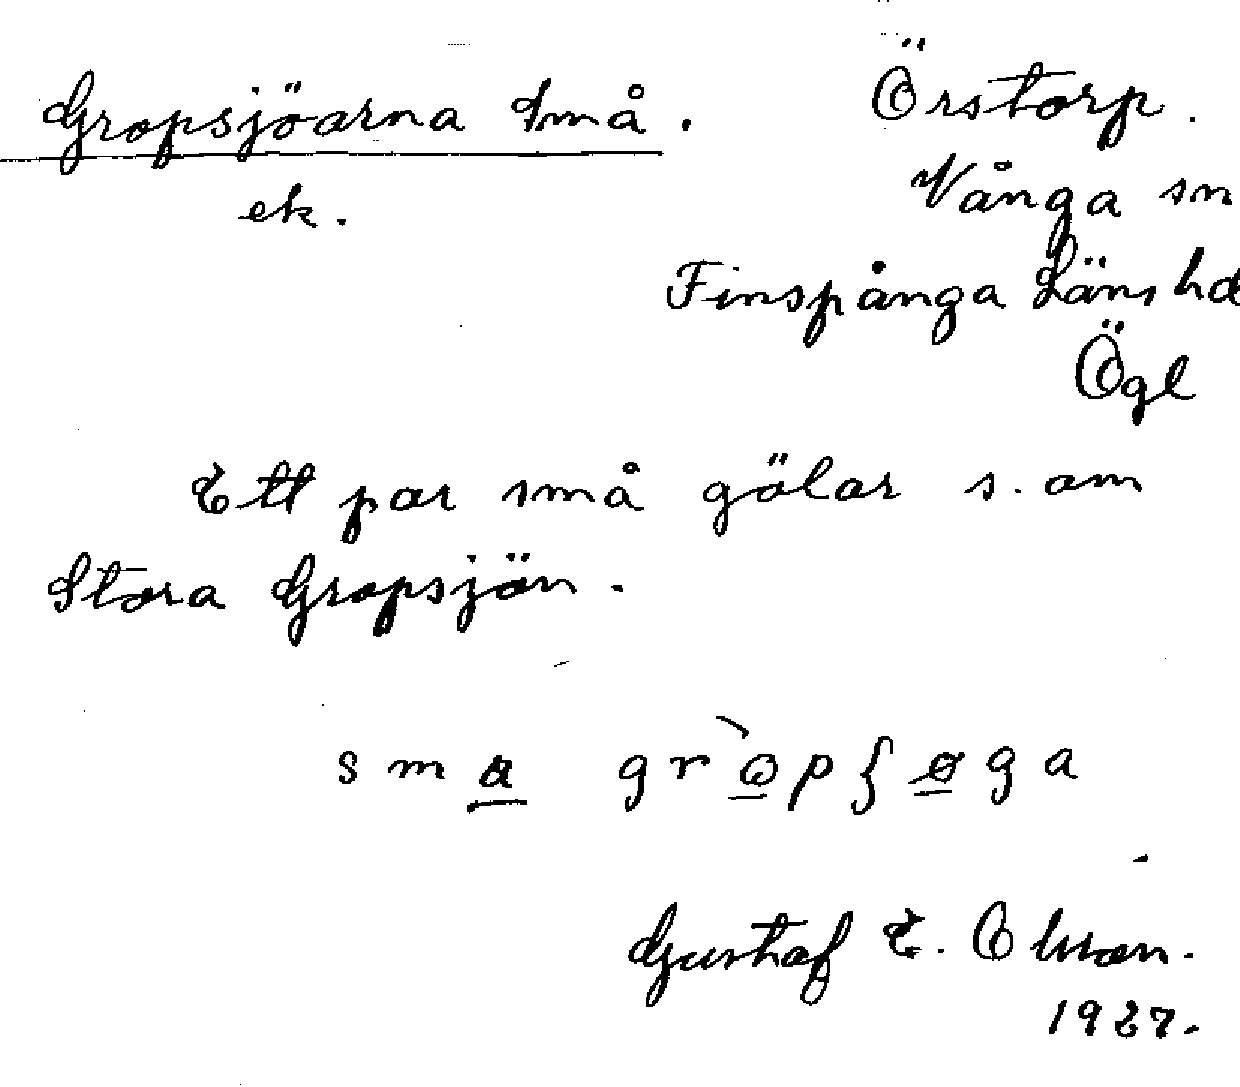 Gropsjöarna Små.
ek.
Örstorp.
Vånga sn
Finspånga Läns hd
Ögl
Ett par små gölar s. om
Stora Gropsjön.
Gustaf E. Olsson.
1927.